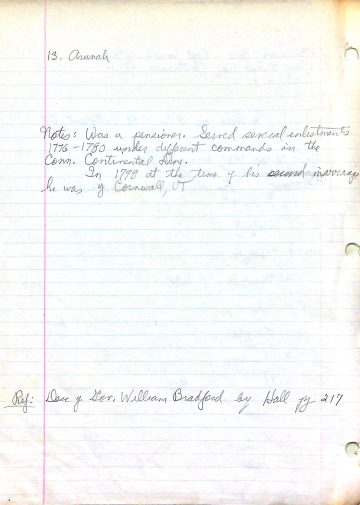 13. Arunah
Notes: Was a pensioner. Served several enlistments
1776-1780 under different commands in the
Conn. Continental Line.
In 1799 at the time of his second marriage
he was of Cornwall, VT
Ref: Desc of Gov. William Bradford by Hall pg 217